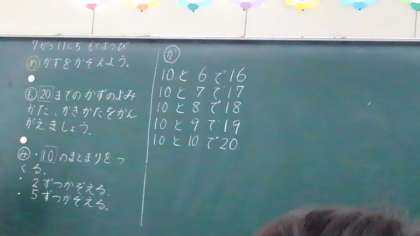 め かずをかぞえよう。
も 20 までのかずのよみ
かた、かきかたをかん
がえましょう。
み ・10 のまとまりをつ
くる。
・2ずつかぞえる。
・5ずつかぞえる。
か
10と6で16
10と7で17
10と8で18
10と9で19
10と10で20